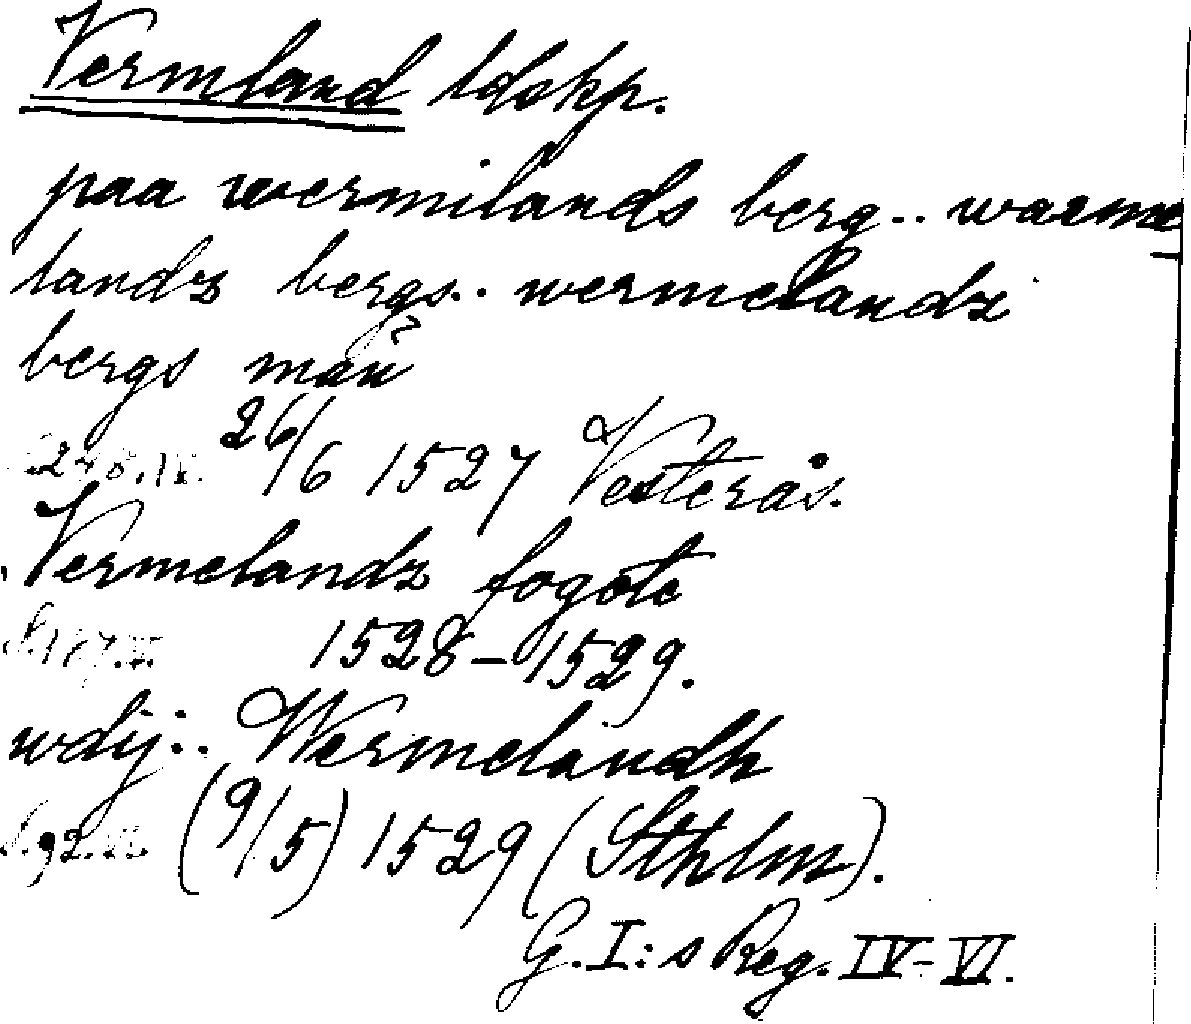 Vermland ldskp.
paa wermilands berg.. warme
landz bergs.. wermelandz
bergs mañ
248.IV. 26/6 1527 Vesterås.
Vermelandz fogote
1528-1529.
wdij.. Wermelandh
S.92.VI. (9/5) 1529 (Sthlm).
G.I:s Reg. IV-VI.